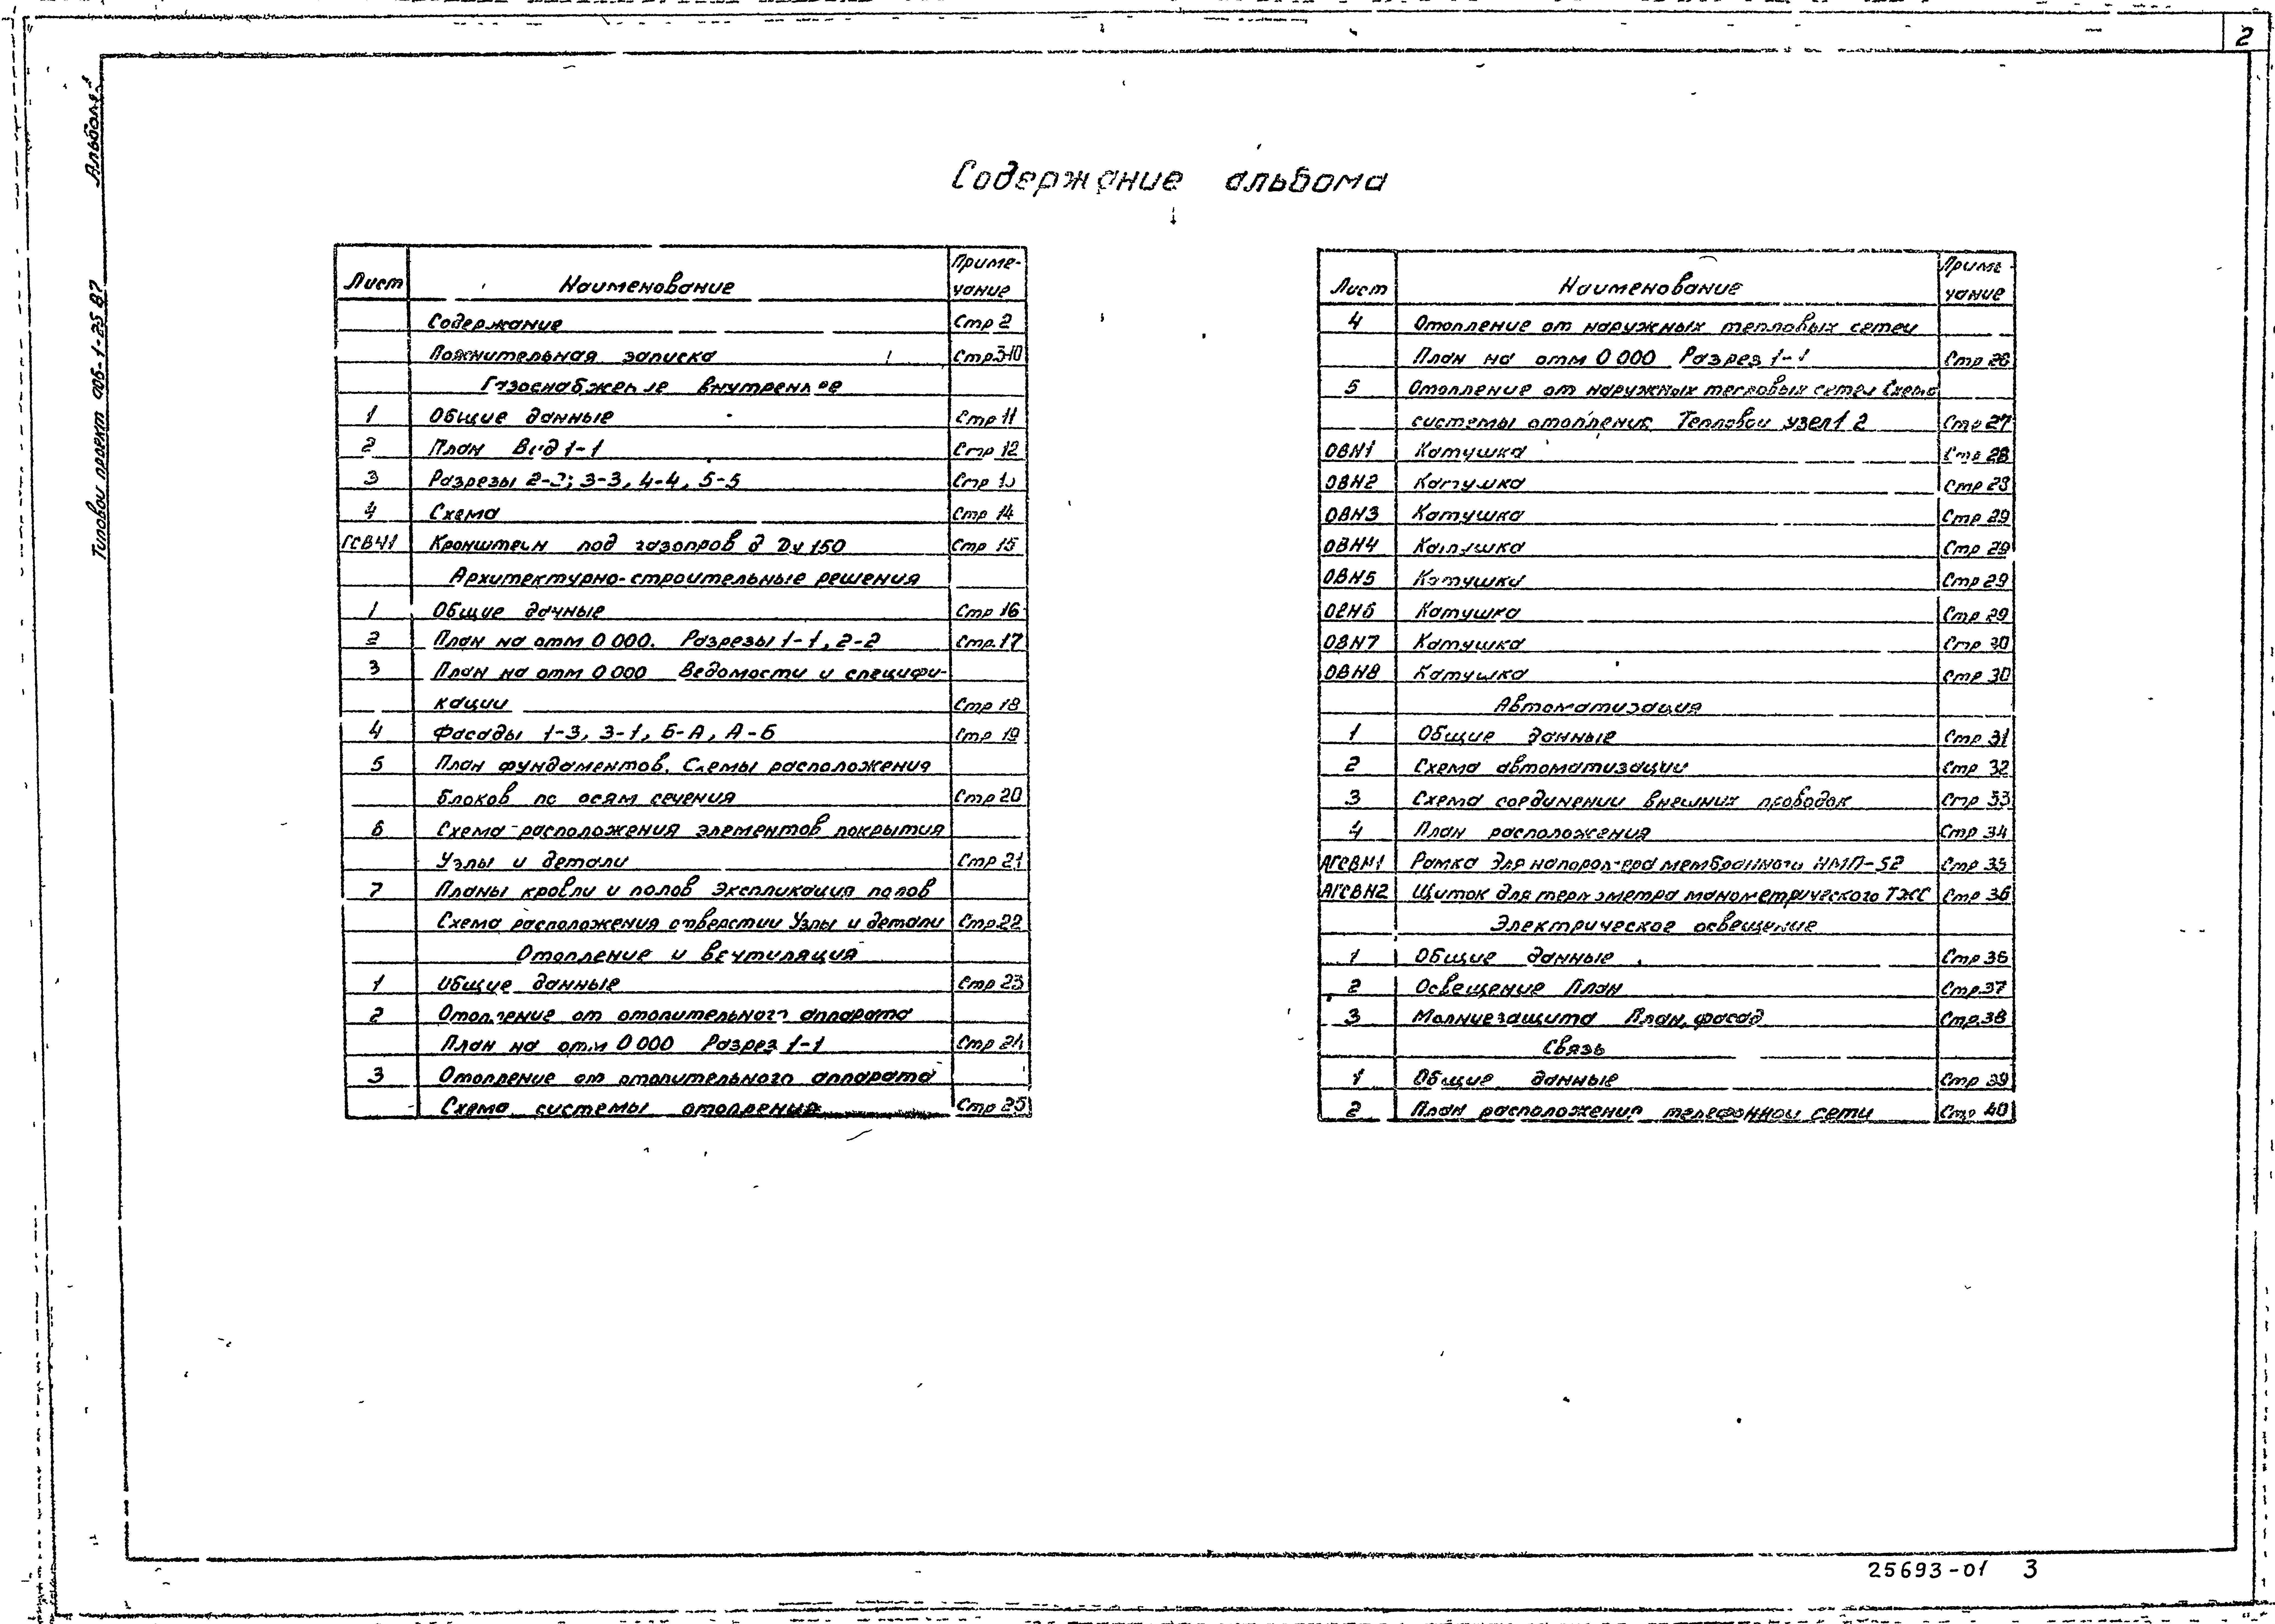 2
Альбом 1
Типовой проект 905-1-25 87
Содержание альбома
Лист Наименование Приме-
чание
Содержание Стр 2
Пояснительная записка Стр.3-10
Газоснабжение внутреннее
1 Общие данные Стр 11
2 План Вид 1-1 Стр 12
3 Разрезы 2-2; 3-3, 4-4, 5-5 Стр
4 Схема Стр 14
ГСВН1 Кронштейн под газопровод Ду 150 Стр 15
Архитектурно-строительные решения
1 Общие данные Стр 16
2 План на отм 0 000. Разрезы 1-1, 2-2 Стр.17
3 План на отм 0 000 Ведомости и специфи-
кации Стр 18
4 Фасады 1-3, 3-1, Б-А, А-Б Стр 19
5 План фундаментов. Схемы расположения
блоков по осям сечения Стр 20
6 Схема расположения элементов покрытия
Узлы и детали Стр 21
7 Планы кровли и полов Экспликация полов
Схема расположения отверстий Узлы и детали Стр.22
Отопление и вентиляция
1 Общие данные Стр 23
2 Отопление от отопительного аппарата
План на отм 0 000 Разрез 1-1 Стр 24
3 Отопление от отопительного аппарата
Схема системы отопления Стр 25
Лист Наименование Приме-
чание
4 Отопление от наружных тепловых сетей
План на отм 0 000 Разрез 1-1 Стр 26
5 Отопление от наружных тепловых сетей Схема
системы отопления Тепловой узел 1 2 Стр 27
ОВН1 Катушка Стр 28
ОВН2 Катушка Стр
ОВН3 Катушка Стр 29
ОВН4 Катушка Стр 29
ОВН5 Катушка Стр 29
ОВН6 Катушка Стр 29
ОВН7 Катушка Стр 30
ОВН8 Катушка Стр 30
Автоматизация
1 Общие данные Стр 31
2 Схема автоматизации Стр 32
3 Схема соединений внешних проводок Стр 33
4 План расположения Стр 34
АГСВН1 Рамка для напоромера мембранного НМП-52 Стр 35
АГСВН2 Щиток для термометра манометрического ТЖС Стр 36
Электрическое освещение
1 Общие данные Стр 36
2 Освещение План Стр.37
3 Молниезащита План, фасад Стр.38
Связь
1 Общие данные Стр 39
2 План расположения телефонной сети Стр 40
25693-01 3